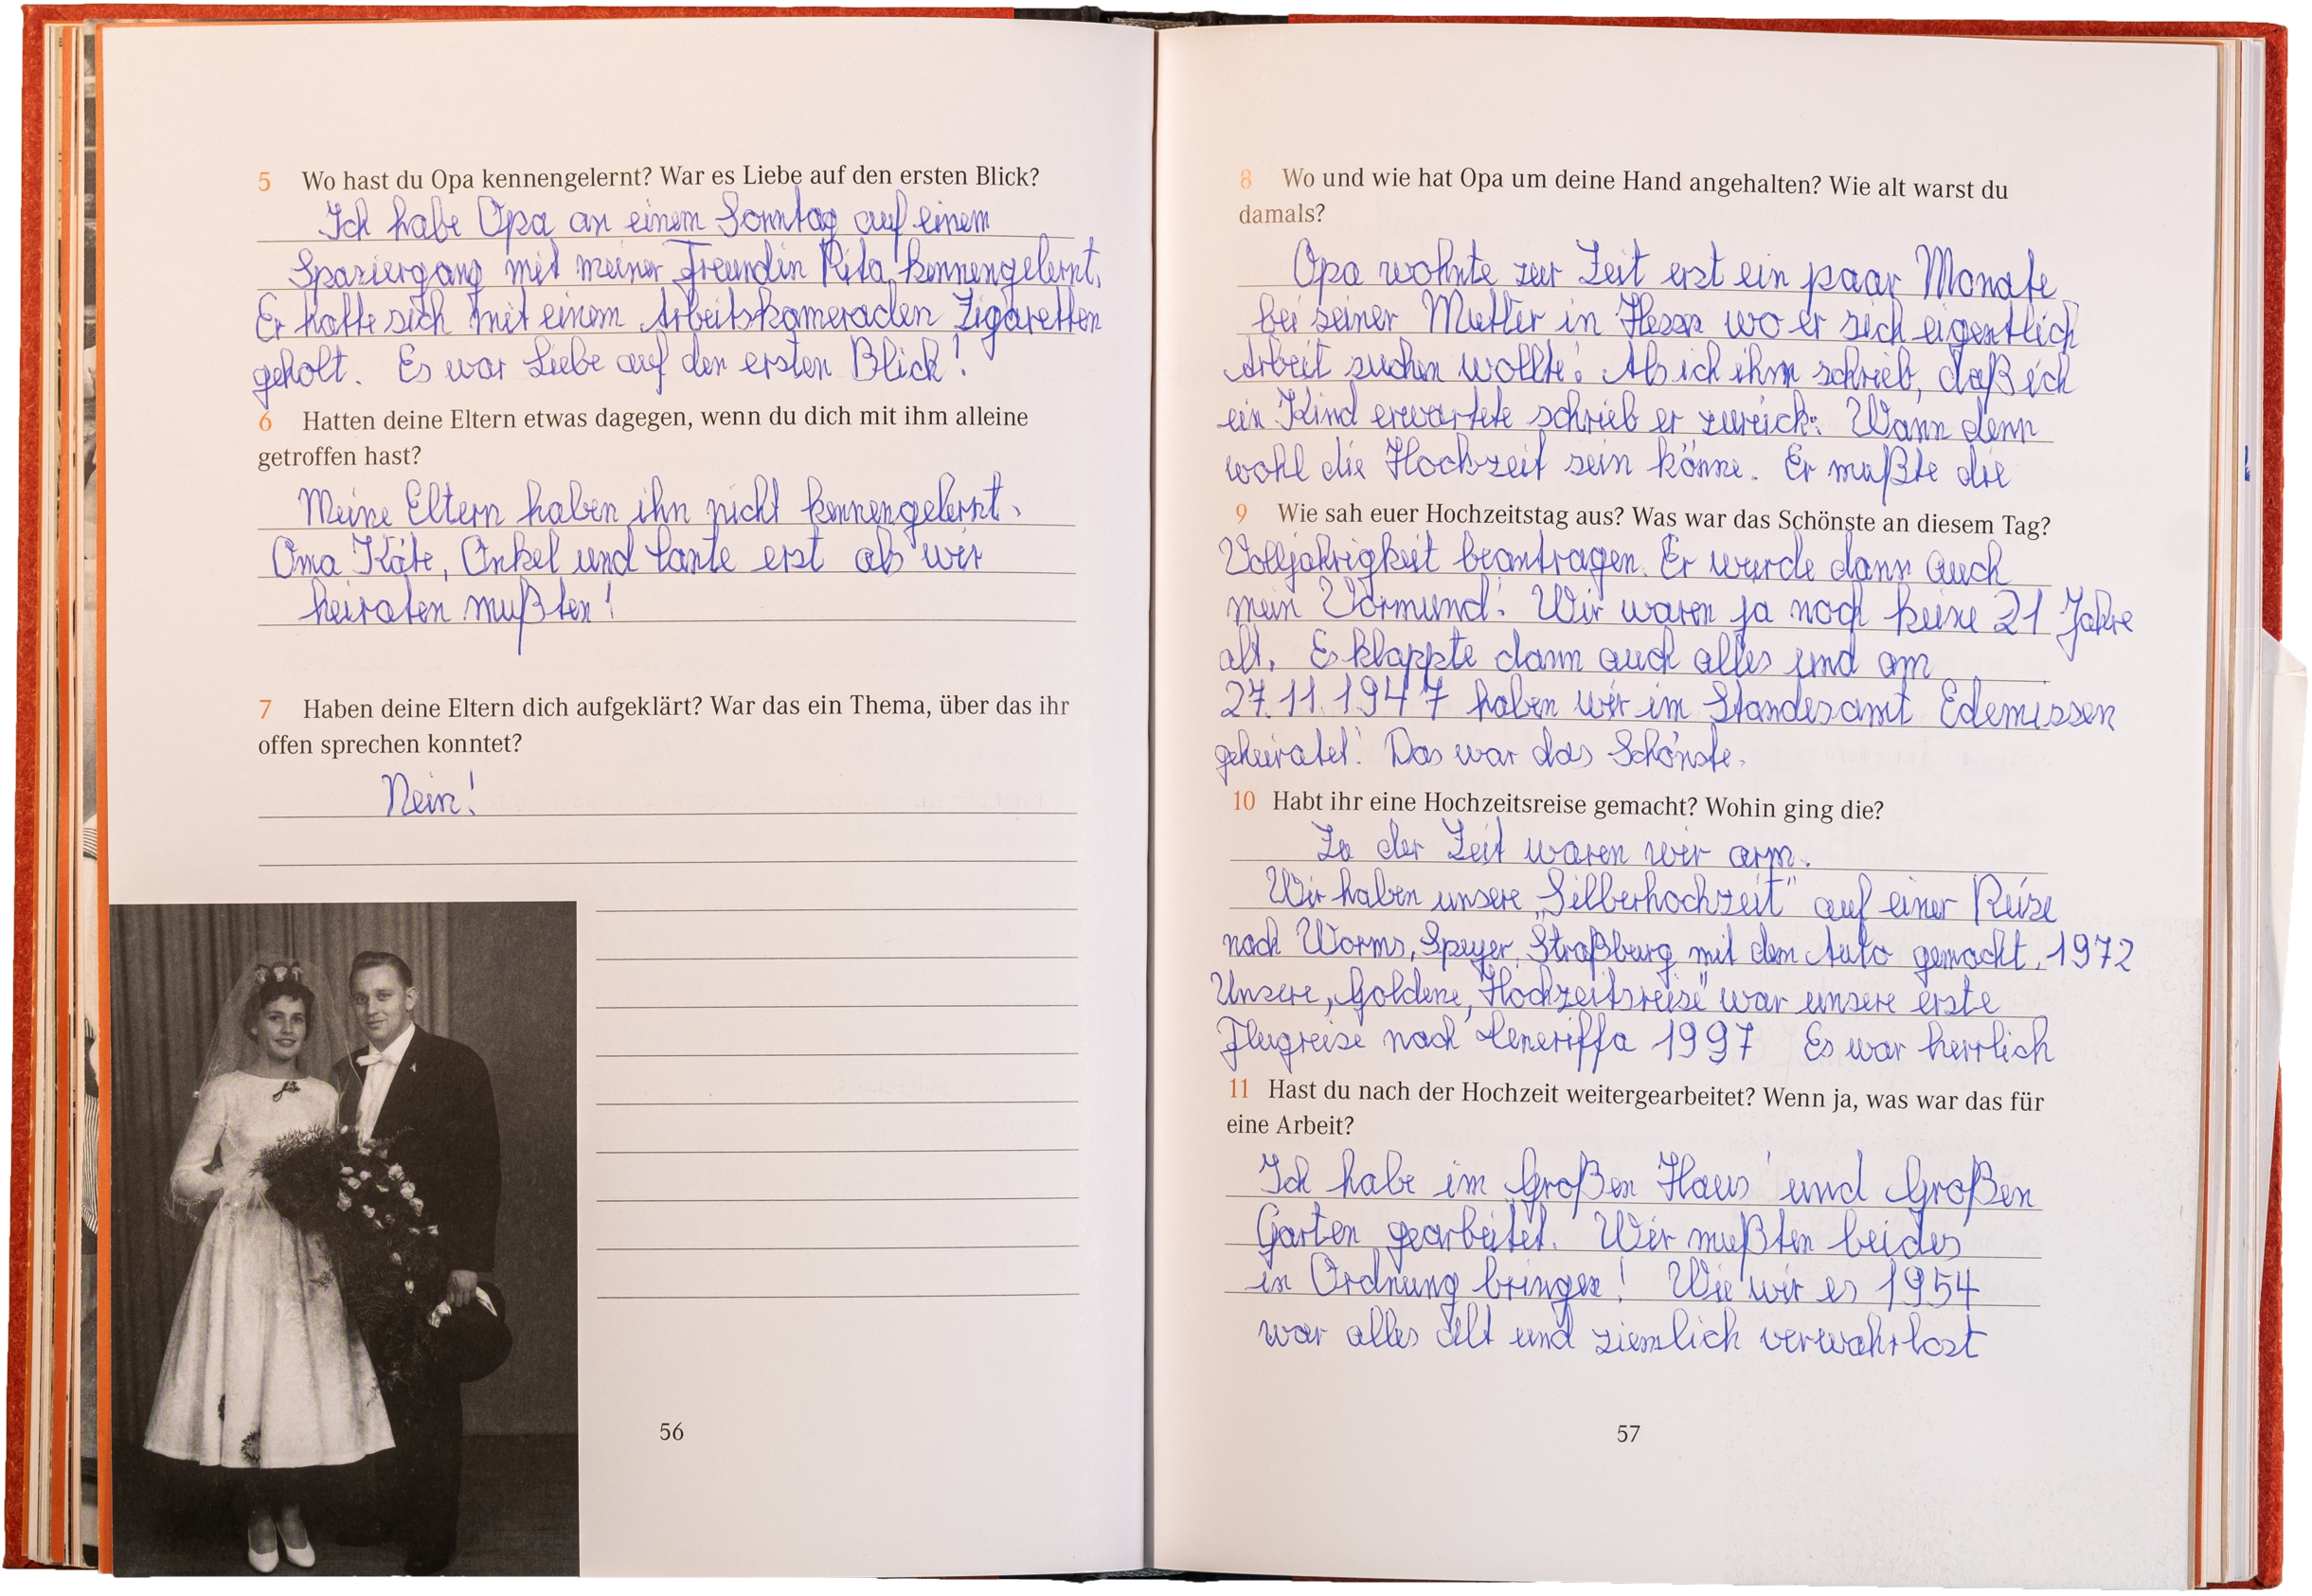 5 Wo hast du Opa kennengelernt? War es Liebe auf den ersten Blick?
Ich habe Opa an einem Sonntag auf einem
Spaziergang mit meiner Freundin Rita kennengelernt.
Er hatte sich mit einem Arbeitskameraden Zigaretten
geholt. Es war Liebe auf den ersten Blick!
6 Hatten deine Eltern etwas dagegen, wenn du dich mit ihm alleine
getroffen hast?
Meine Eltern haben ihn nicht kennengelernt.
Oma Käte, Onkel und Tante erst als wir
heiraten mußten!
7 Haben deine Eltern dich aufgeklärt? War das ein Thema, über das ihr
offen sprechen konntet?
Nein!
56
8 Wo und wie hat Opa um deine Hand angehalten? Wie alt warst du
damals?
Opa wohnte zur Zeit erst ein paar Monate
bei seiner Mutter in Hessen wo er sich eigentlich
Arbeit suchen wollte! Als ich ihm schrieb, daß ich
ein Kind erwartete schrieb er zurück: Wann denn
wohl die Hochzeit sein könne. Er mußte die
9 Wie sah euer Hochzeitstag aus? Was war das Schönste an diesem Tag?
Volljährigkeit beantragen. Er wurde dann auch
mein Vormund! Wir waren ja noch keine 21 Jahre
alt. Es klappte dann auch alles und am
27.11.1947 haben wir im Standesamt Edemissen
geheiratet! Das war das Schönste.
10 Habt ihr eine Hochzeitsreise gemacht? Wohin ging die?
Zu der Zeit waren wir arm.
Wir haben unsere „Silberhochzeit" auf einer Reise
nach Worms, Speyer, Straßburg mit dem Auto gemacht. 1972
Unsere „Goldene, Hochzeitsreise" war unsere erste
Flugreise nach Teneriffa 1997 Es war herrlich
11 Hast du nach der Hochzeit weitergearbeitet? Wenn ja, was war das für
eine Arbeit?
Ich habe im Großen Haus und Großen
Garten gearbeitet. Wir mußten beides
in Ordnung bringen! Wie wir es 1954
war alles alt und ziemlich verwahrlost
57